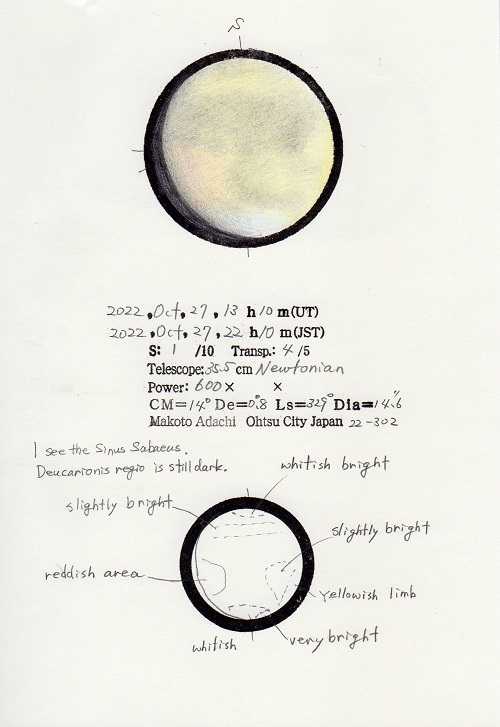 S
2022, Oct, 27, 13 h 10 m(UT)
2022, Oct, 27, 22 h 10 m(JST)
S: 1 /10 Transp.: 4 /5
Telescope: 35.5 cm Newtonian
Power: 600 × ×
CM=14° De=0.°8 Ls=329° Dia=14."6
Makoto Adachi Ohtsu City Japan 22-302
I see the Sinus Sabaeus.
Deucarionis regio is still dark.
whitish bright
slightly bright
slightly bright
reddish area
yellowish limb
whitish
very bright